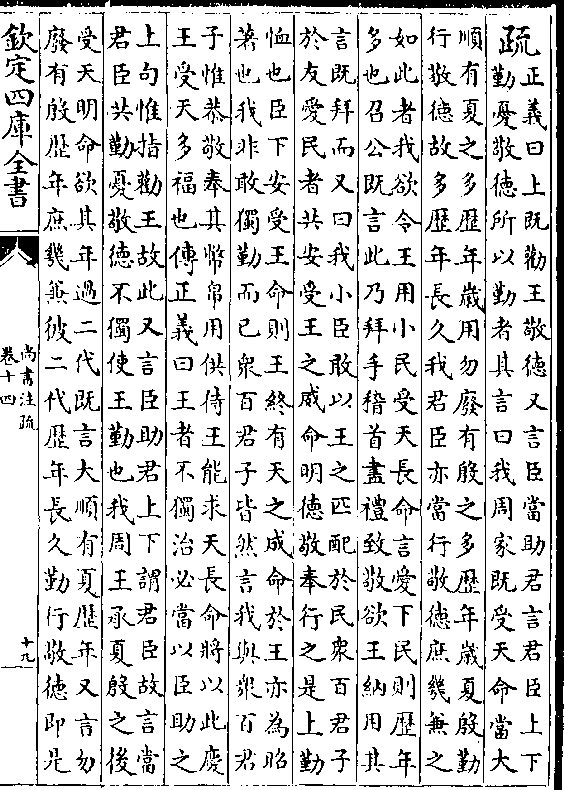 疏正義曰上既勸王敬德又言臣當助君言君臣上下
勤憂敬德所以勤者其言曰我周家既受天命當大
順有夏之多歷年歲用勿廢有殷之多歷年歲夏殷勤
行敬德故多歷年長久我君臣亦當行敬德庶幾兼之
如此者我欲令王用小民受天長命言愛下民則歷年
多也召公既言此乃拜手稽首盡禮致敬欲王納用其
言既拜而又曰我小臣敢以王之匹配於民衆百君子
於友愛民者共安受王之威命明德敬奉行之是上勤
恤也臣下安受王命則王終有天之成命於王亦為昭
著也我非敢獨勤而已衆百君子皆然言我與衆百君
子惟恭敬奉其幣帛用供侍王能求天長命將以此慶
王受天多福也傳正義曰王者不獨治必當以臣助之
上句惟指勸王故此又言臣助君上下謂君臣故言當
君臣共勤憂敬德不獨使王勤也我周王承夏殷之後
受天明命欲其年過二代既言大順有夏歷年又言勿
廢有殷歷年庶幾兼彼二代歷年長久勤行敬德即是
欽定四庫全書
尚書注疏
卷十四
十九